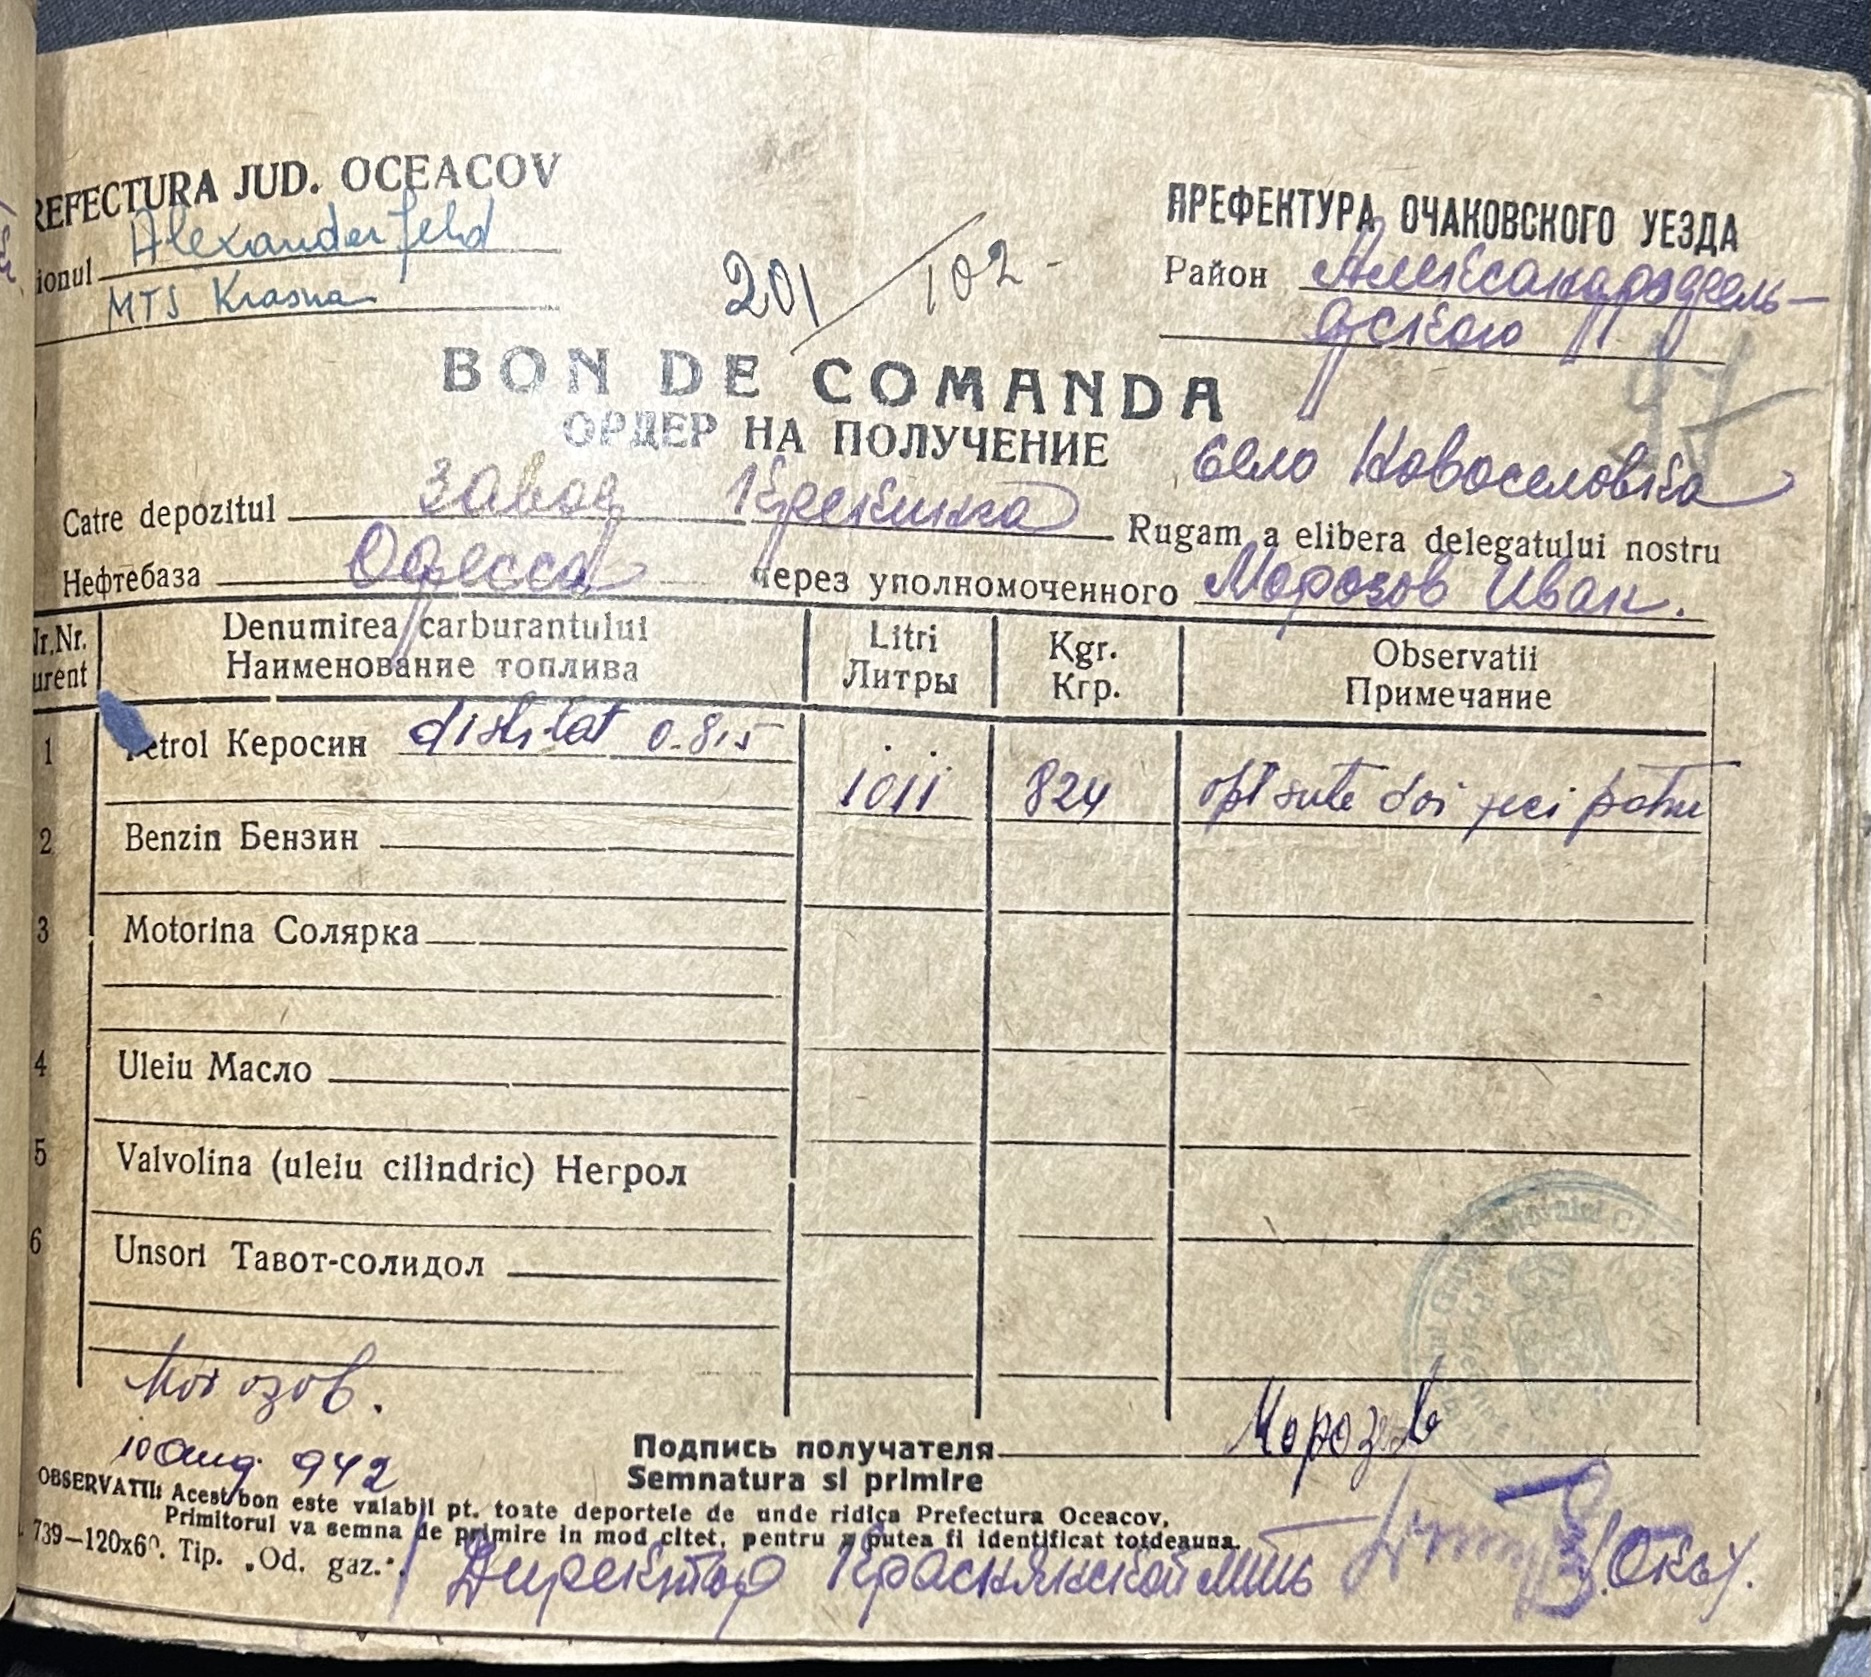 REFECTURA JUD. OCEACOV
ionul Alexanderfeld
MTS Krasna
201/102-
ПРЕФЕКТУРА ОЧАКОВСКОГО УЕЗДА
Район Александрфель-
дского
97
BON DE COMANDA
ОРДЕР НА ПОЛУЧЕНИЕ
село Новоселовка
Catre depozitul завод Крекинга Rugam a elibera delegatului nostru
Нефтебаза Одесса через уполномоченного Морозов Иван.
Nr.Nr. urent
Denumirea carburantului
Наименование топлива
Litri
Литры
Kgr.
Кгр.
Observatii
Примечание
1 Petrol Керосин distilat 0.815
1011 824 opt sute doi zeci patru
2 Benzin Бензин
3 Motorina Солярка
4 Uleiu Масло
5 Valvolina (uleiu cilindric) Негрол
6 Unsori Тавот-солидол
Морозов.
10 Aug. 942
Подпись получателя Морозов
Semnatura si primire
OBSERVATII: Acest bon este valabil pt. toate deportele de unde ridica Prefectura Oceacov.
Primitorul va semna de primire in mod citet, pentru a putea fi identificat totdeauna.
739—120x60. Tip. „Od. gaz."
Директор Краснянской мтс